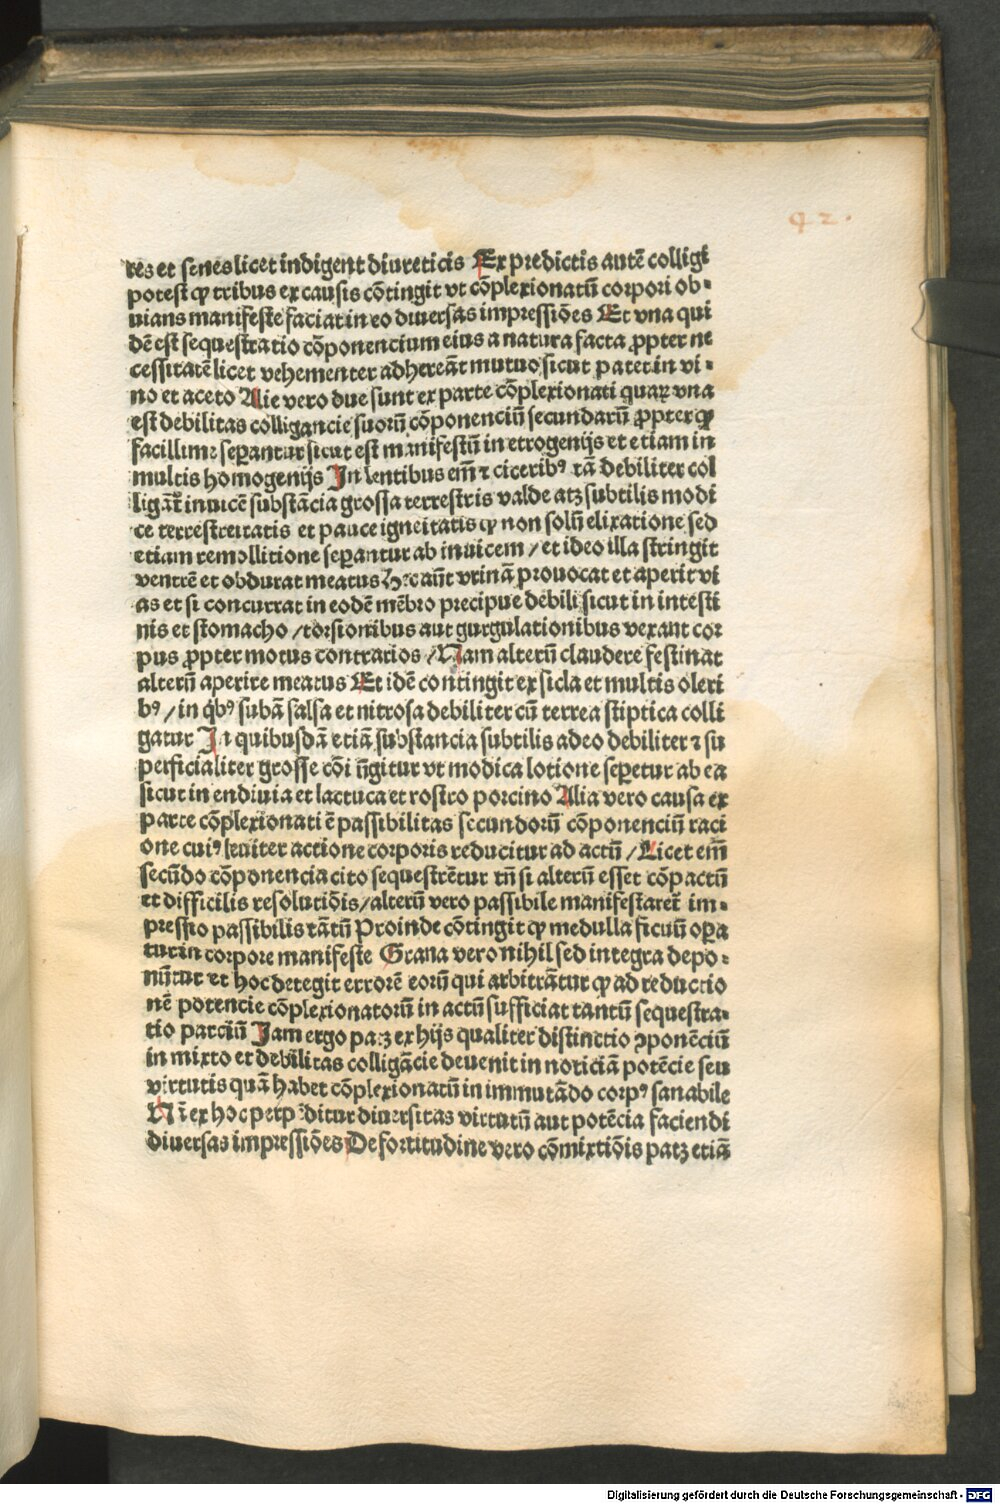 42.
res et senes licet indigent diureticis Ex predictis autē colligi
potest ꝙ tribus ex causis cōtingit vt cōplexionatū corpori ob⸗
uians manifeste faciat in eo diuersas impressiōes Et vna qui
dē est sequestratio cōponencium eius a natura facta ꝓpter ne
cessitatē licet vehementer adhereāt mutuo sicut patet in vi⸗
no et aceto Alie vero due sunt ex parte cōplexionati quaꝝ vna
est debilitas colligancie suorū cōponenciū secundarū ꝓpter ꝙ
facillime seꝑantur sicut est manifestū in etrogenijs et etiam in
multis homogenijs In lentibus em̄ ⁊ ciceribꝰ tā debiliter col
ligāt̄ inuicē substācia grossa terrestris valde atꝫ subtilis modi
ce terrestreitatis et pauce igneitatis ꝙ non solū elixatione sed
etiam remollitione seꝑantur ab inuicem / et ideo illa stringit
ventrē et obdurat meatus Hec aūt vrinā prouocat et aperit vi
as et si concurrat in eodē mēbro precipue debili sicut in intesti
nis et stomacho / torsionibus aut gurgulationibus vexant cor
pus ꝓpter motus contrarios / Nam alterū claudere festinat
alterū aperire meatus Et idē contingit ex sicla et multis oleri
bꝰ / in q̇bꝰ subā salsa et nitrosa debiliter cū terrea stiptica colli
gatur In quibusdā etiā substancia subtilis adeo debiliter ⁊ su
perficialiter grosse cōi ūgitur vt modica lotione seꝑetur ab ea
sicut in endiuia et lactuca et rostro porcino Alia vero causa ex
parte cōplexionati ē passibilitas secundorū cōponenciū raci
one cuiꝰ leuiter actione corporis reducitur ad actū / Licet em̄
secūdo cōponencia cito sequestrētur tn̄ si alterū esset cōpactū
et difficilis resolutiōis / alterū vero passibile manifestaret̄ im⸗
pressio passibilis tātū Proinde cōtingit ꝙ medulla ficuū oꝑa
tur in corpore manifeste Grana vero nihil sed integra depo⸗
nūtur et hoc detegit errorē eorū qui arbitrātur ꝙ ad reductio
nē potencie cōplexionatorū in actū sufficiat tantū sequestra⸗
tio parciū Jam ergo patꝫ ex hijs qualiter distinctio ꝯponēciū
in mixto et debilitas colligācie deuenit in noticiā potēcie seu
virtutis quā habet cōplexionatū in immutādo corpꝰ sanabile
Nā ex hoc perpēditur diuersitas virtutū aut potēcia faciendi
diuersas impressiōes De fortitudine vero cōmixtiōis patꝫ etiā
Digitalisierung gefördert durch die Deutsche Forschungsgemeinschaft - DFG